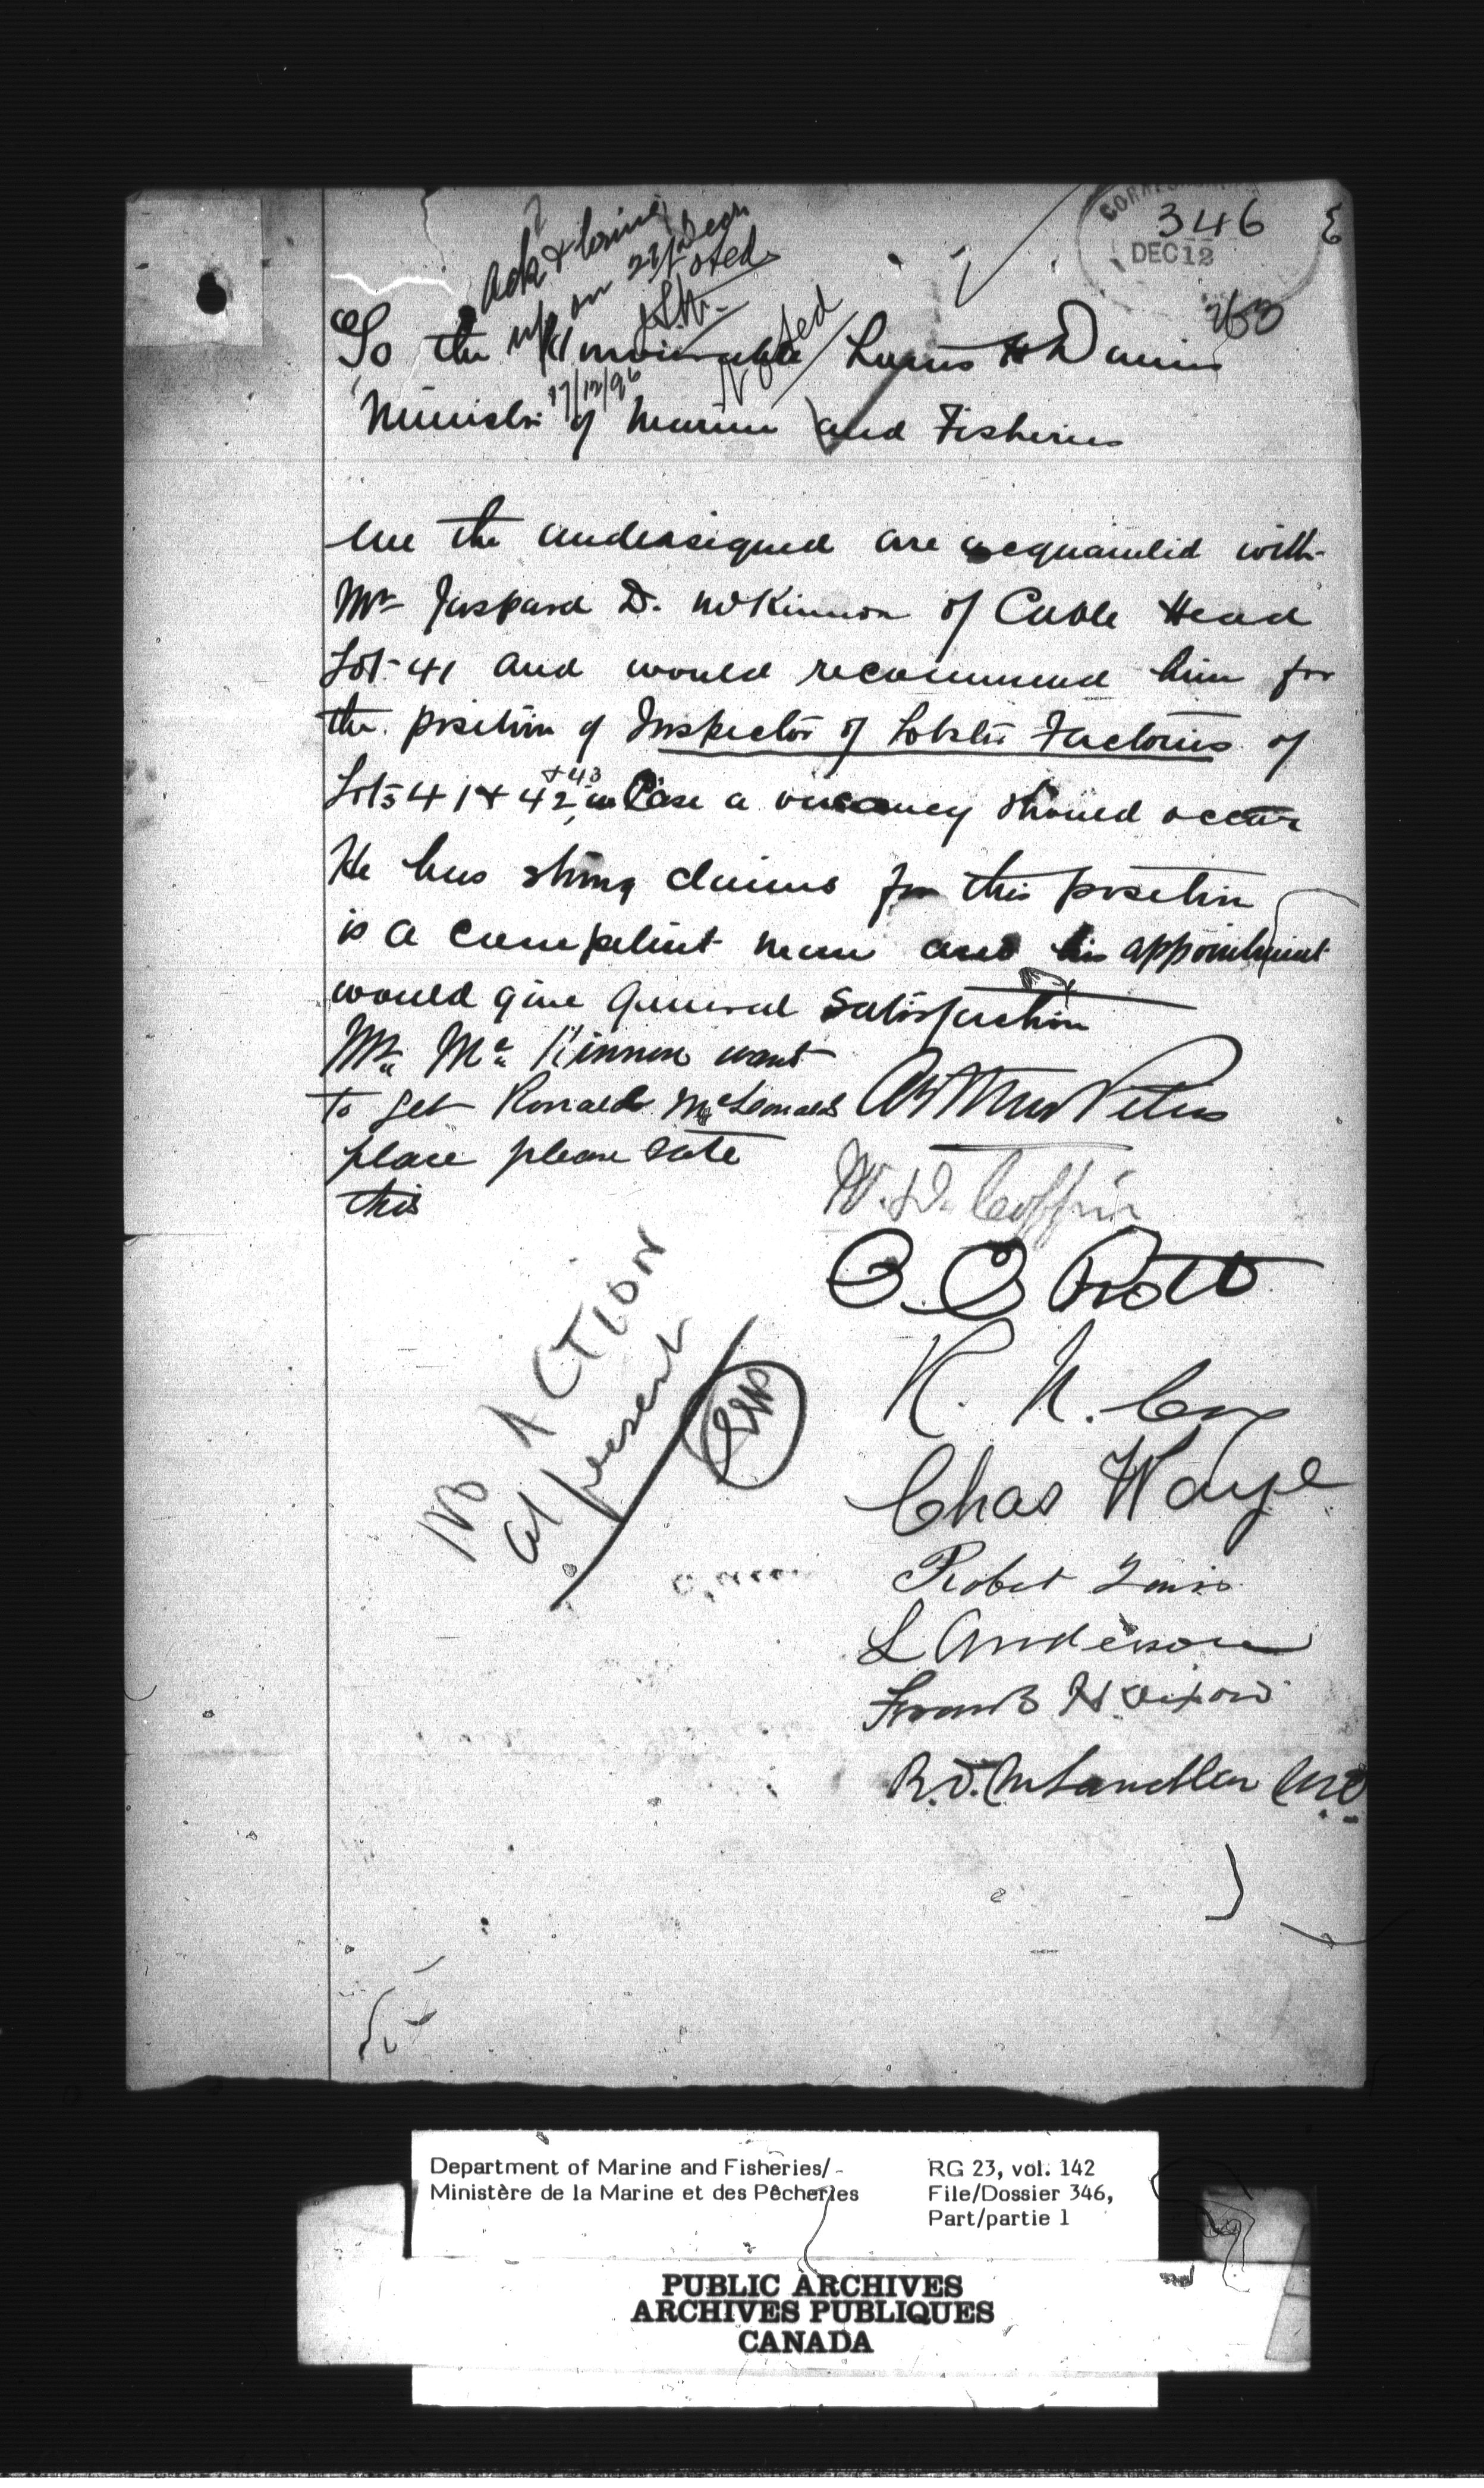 346
DEC 12
263
Ack & bring
up on 22nd Decr
Noted
17/12/96
Noted
To the Honourable Louis H Davies
Minister of Marine and Fisheries
We the undersigned are acquainted with
Mr Jaspard D. McKinnon of Cable Head
Lot 41 and would recommend him for
the position of Inspector of Lobster Factories of
+ 43
Lots 41 + 42 in Case a vacancy should occur
He has strong claims for this position
is a competent man and his appointment
would give general satisfaction
Mr. Mc Kinnon want
to get Ronald McDonalds
place please state
this
Arthur Peters
W. D. Coffin
R. N. Cox
Chas
Robert
L Anderson
Frank H Dixon
R. D. McLauchlan MD
NO ACTION
at present
Department of Marine and Fisheries/
Ministère de la Marine et des Pêcheries
RG 23, vol. 142
File/Dossier 346,
Part/partie 1
PUBLIC ARCHIVES
ARCHIVES PUBLIQUES
CANADA